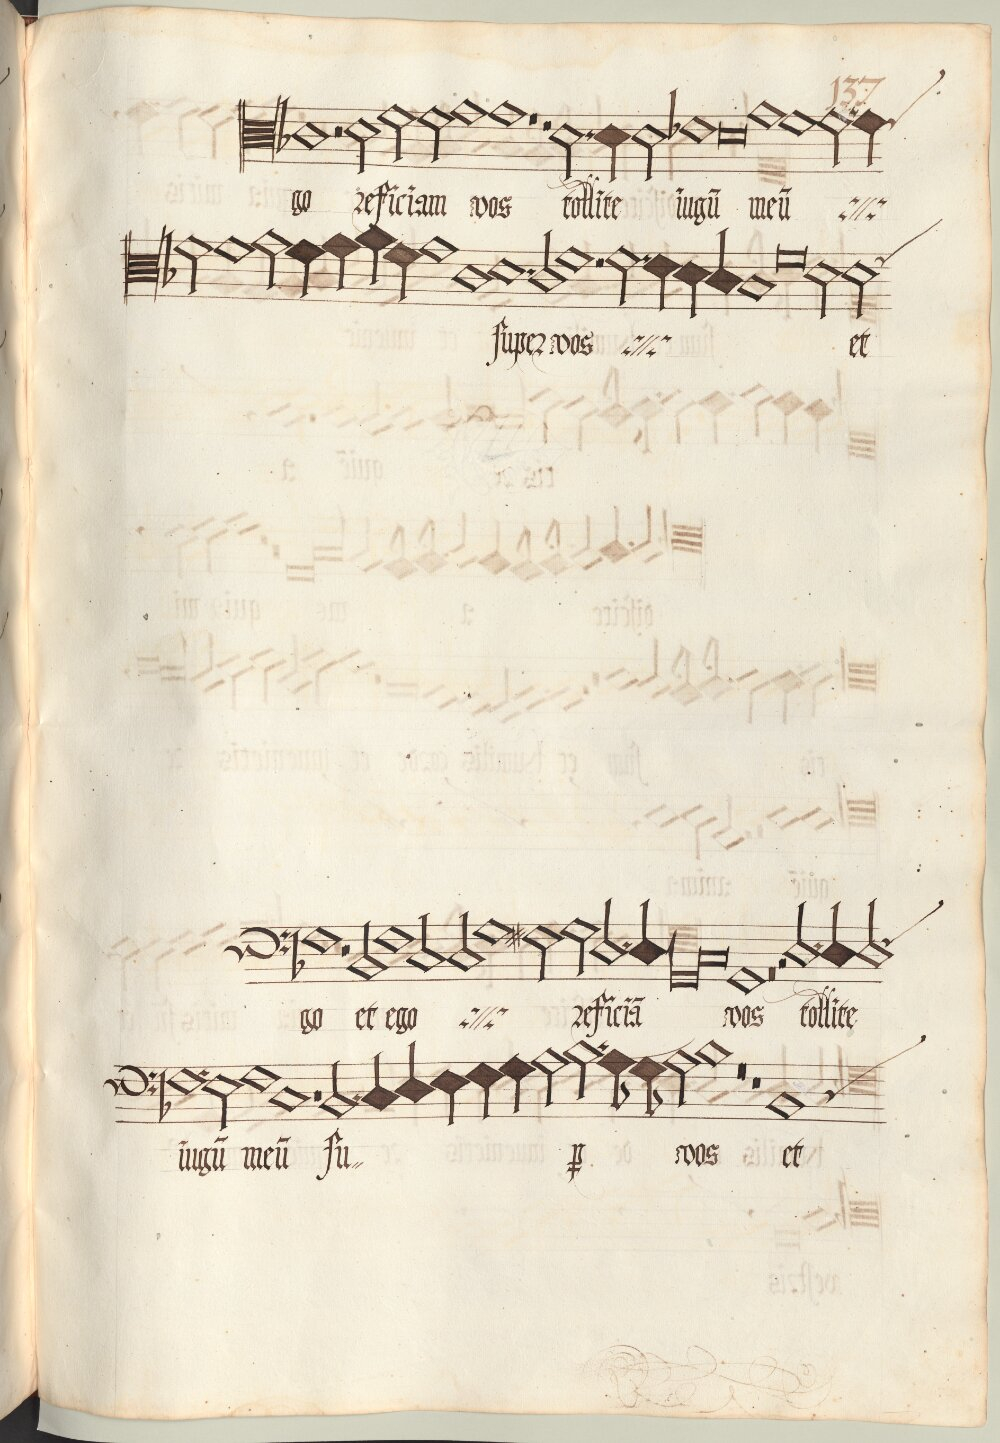 137
go reficiam vos tollite iugũ meũ
super vos et
go et ego reficiã vos tollite
iugũ meũ su„ ꝑ vos et